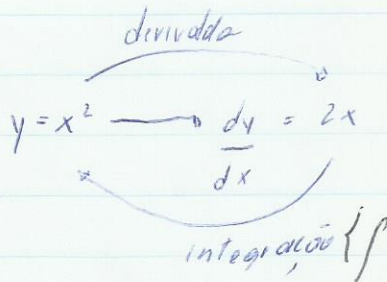 derivada
y = x² → dy/dx = 2x
integração { ∫